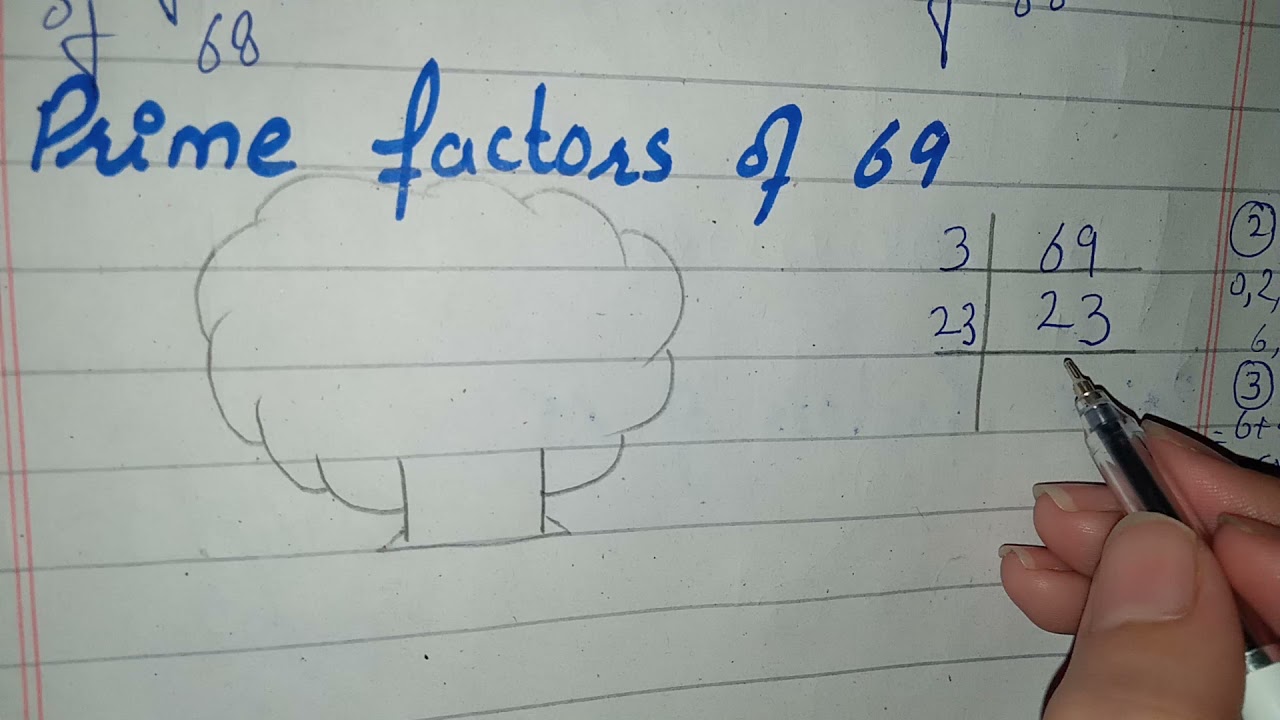 of 68
Prime factors of 69
3 69
23 23
2
0,2,
6,
3
= 6+